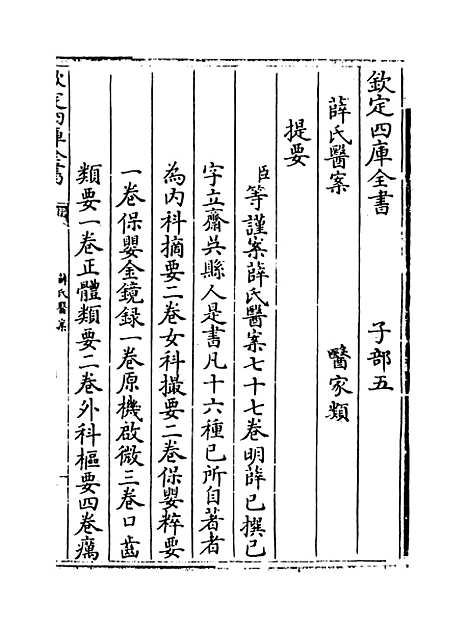 欽定四庫全書 子部五
薛氏醫案 醫家類
提要
臣等謹案薛氏醫案七十七卷明薛已撰已
字立齋吳縣人是書凡十六種已所自著者
為內科摘要二卷女科撮要二卷保嬰粹要
一卷保嬰金鏡録一卷原機啟微三卷口齒
類要一卷正體類要二卷外科樞要四卷癘
欽定四庫全書
薛氏醫案
一